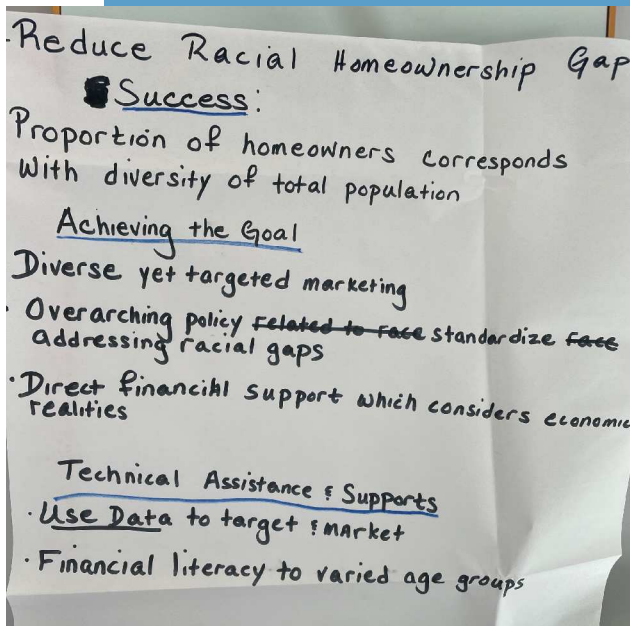 - Reduce Racial Homeownership Gap
Success:
Proportion of homeowners corresponds
with diversity of total population
Achieving the Goal
Diverse yet targeted marketing
· Overarching policy related to race standardize race
addressing racial gaps
· Direct financial support which considers economic
realities
Technical Assistance & Supports
· Use Data to target & market
· Financial literacy to varied age groups